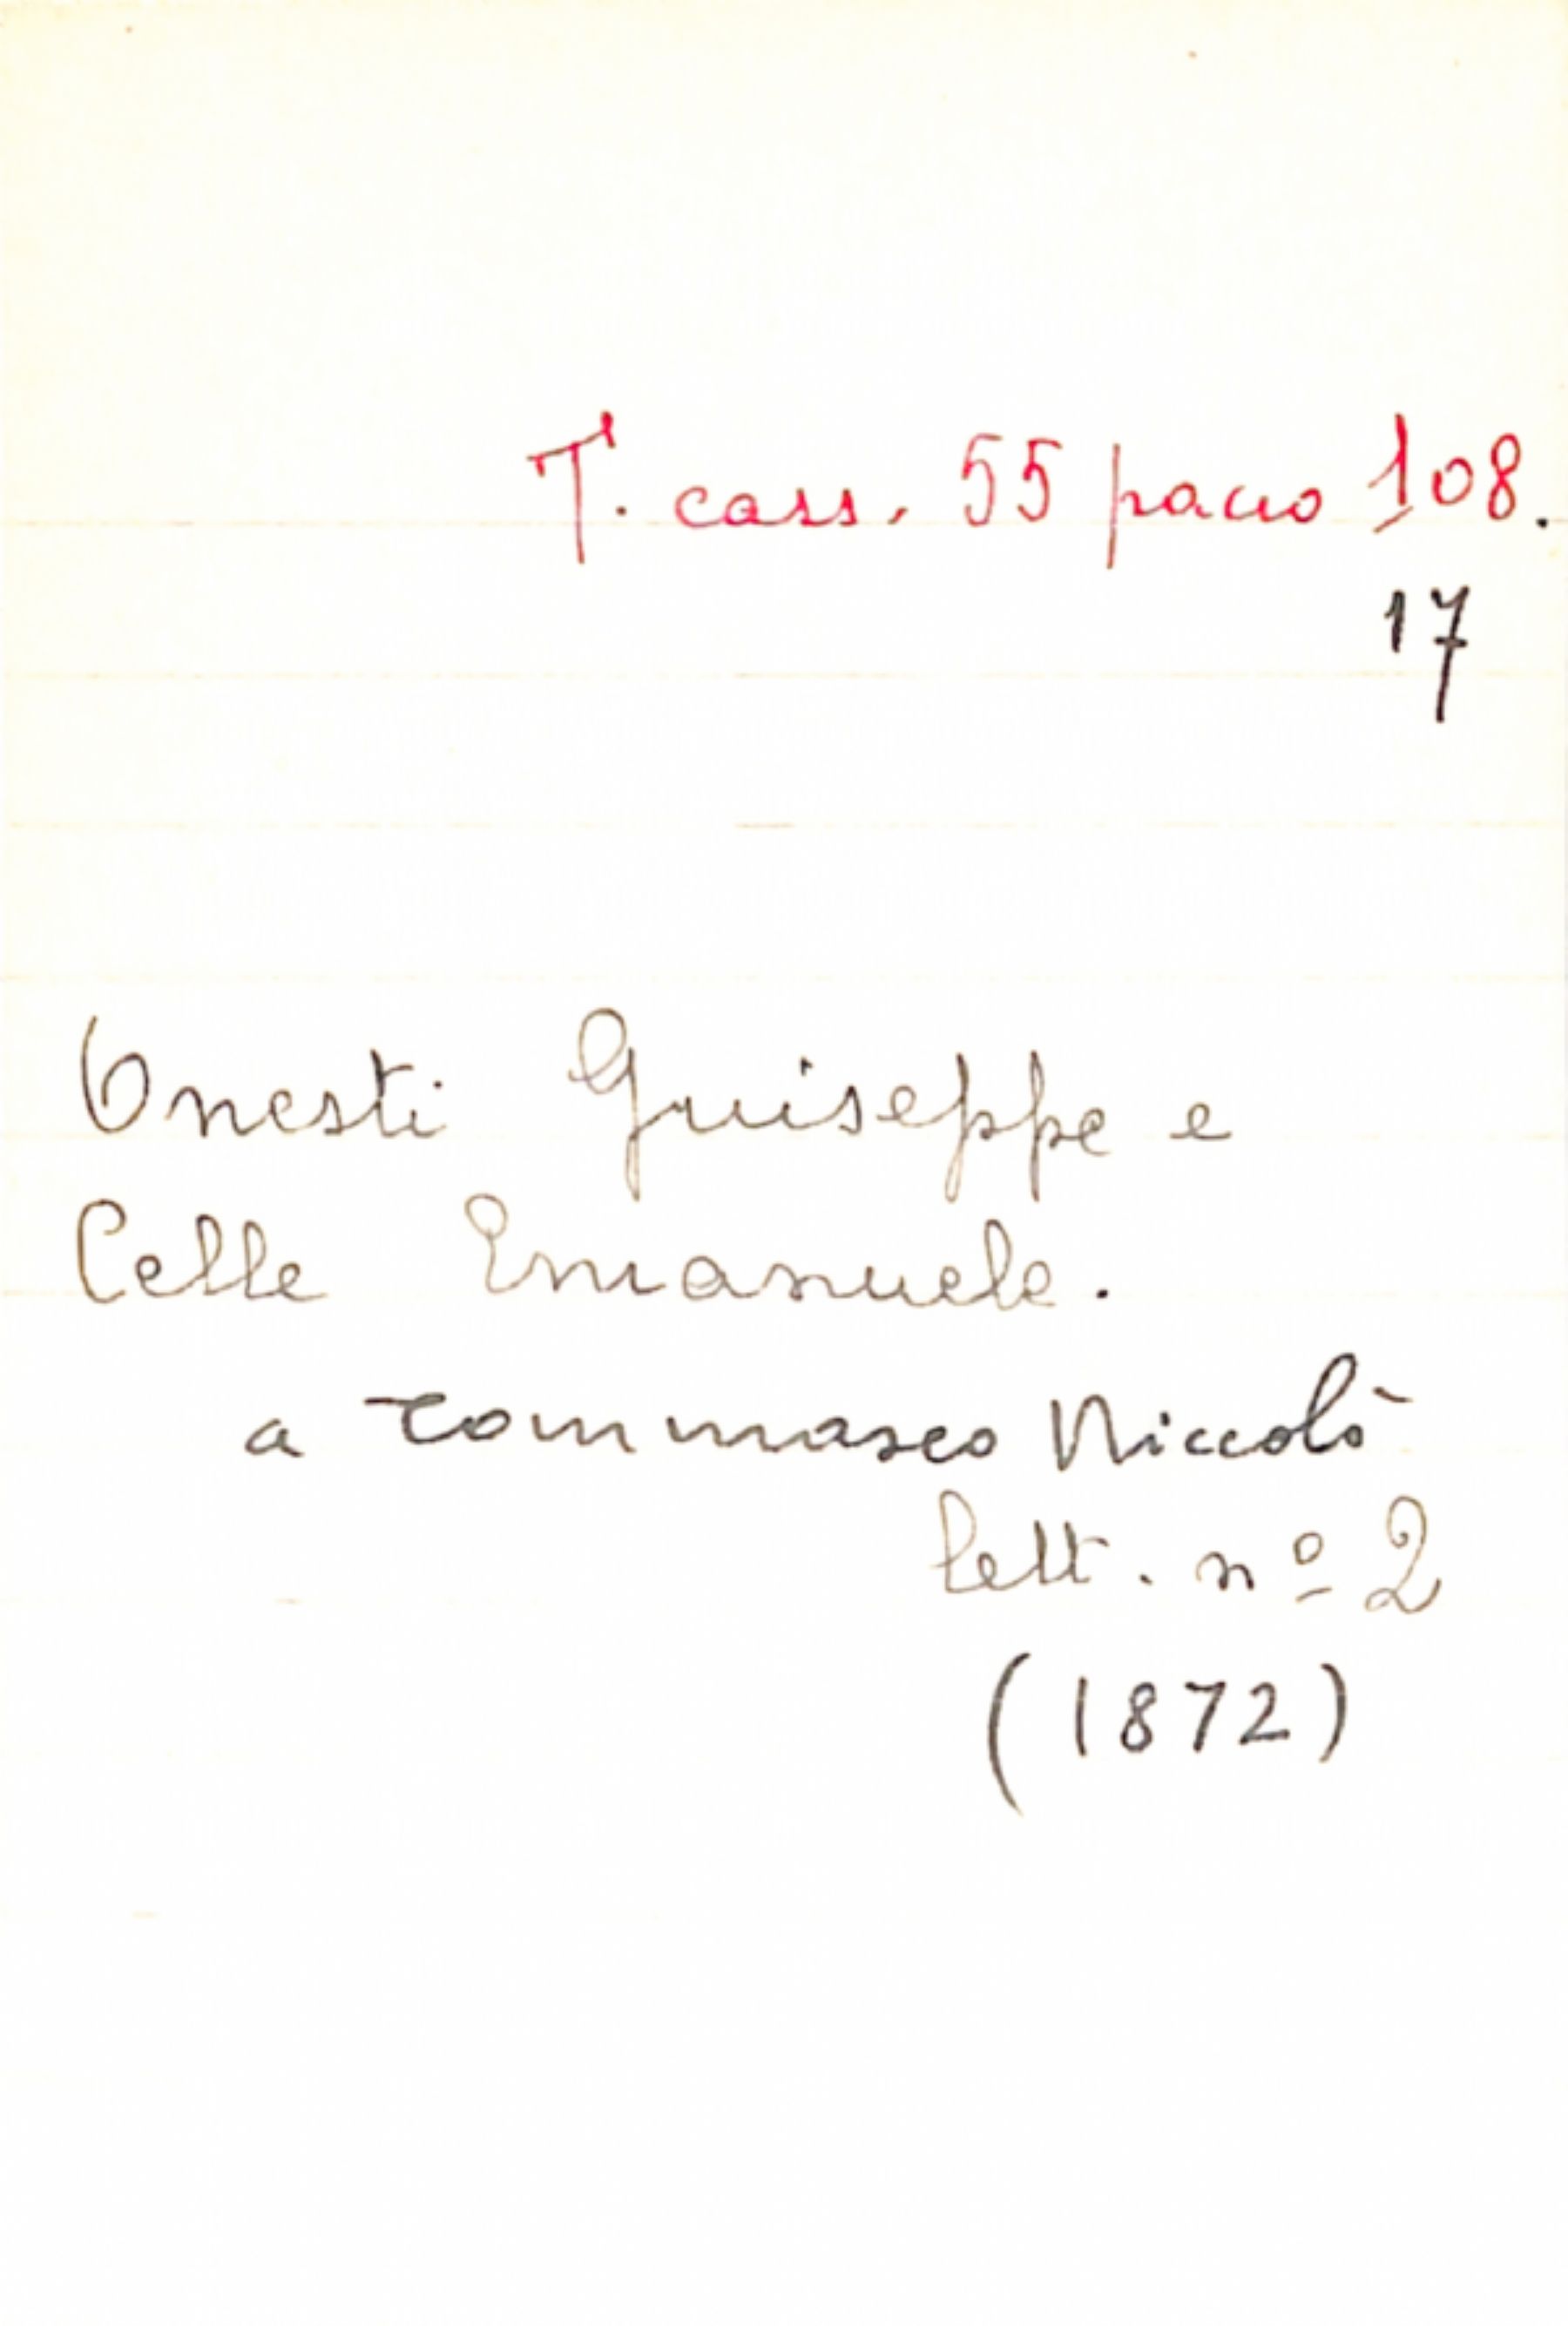 T. cass. 55 pacco 108.
17
Onesti Giuseppe e
Celle Emanuele.
a Tommaseo Niccolò
lett. nº 2
(1872)